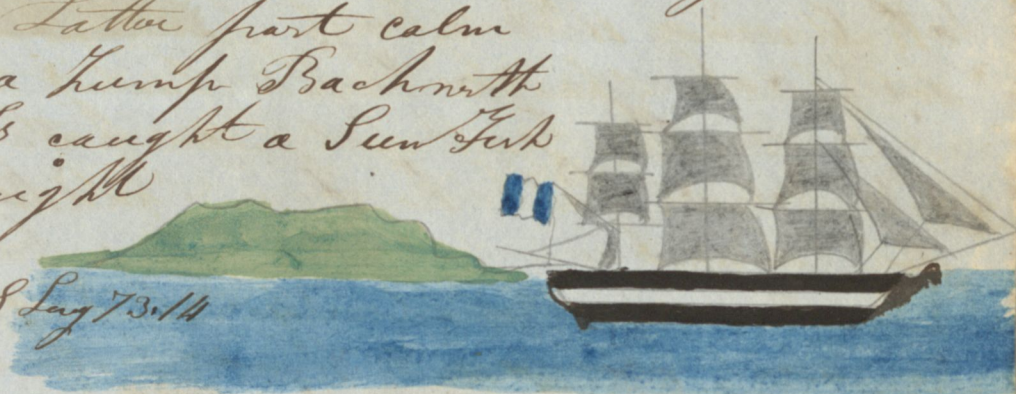 Latter part calm
a Hump Back with
caught a Sun Fish
Log 73.14